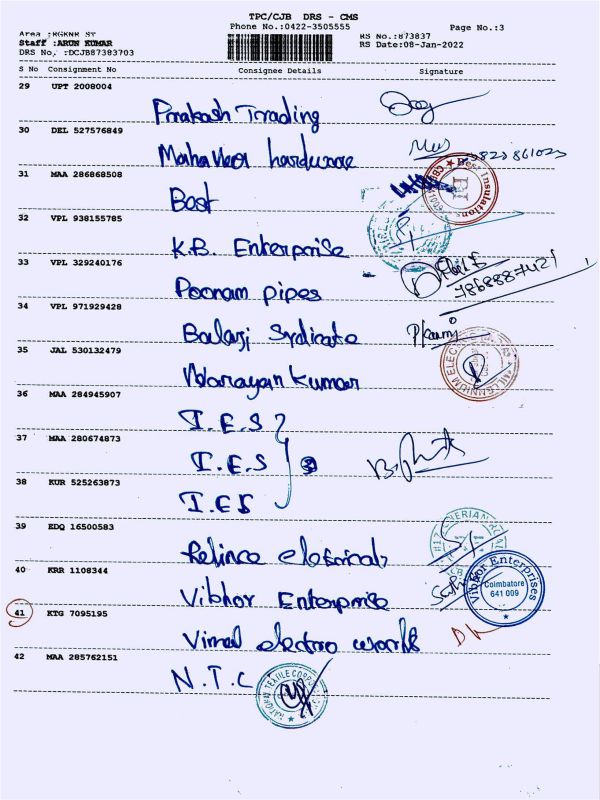 TPC/CJB DRS - CMS
Phone No.:0422-3505555
Page No.:3
Staff :ARUN KUMAR
RS No.:873837
DRS No. :DCJB87383703
RS Date:08-Jan-2022
S No Consignment No Consignee Details Signature
29 UPT 2008004
Prakash Trading
30 DEL 527576849
Mahaveer hardware
31 MAA 286868508
Best
Best Insulations
32 VPL 938155785
K.B. Enterprise
33 VPL 329240176
Poonam pipes
7868887421
34 VPL 971929428
Balaji Sydicate
35 JAL 530132479
Narayan Kumar
36 MAA 284945907
I.E.S
37 MAA 280674873
I.E.S
38 KUR 525263873
I.E.S
39 EDQ 16500583
Relince eletricals
40 KRR 1108344
Vibhor Enterprise
Vibhor Enterprises
Coimbatore
641 009
41 KTG 7095195
Vimal electro works
42 MAA 285762151
N.T.C